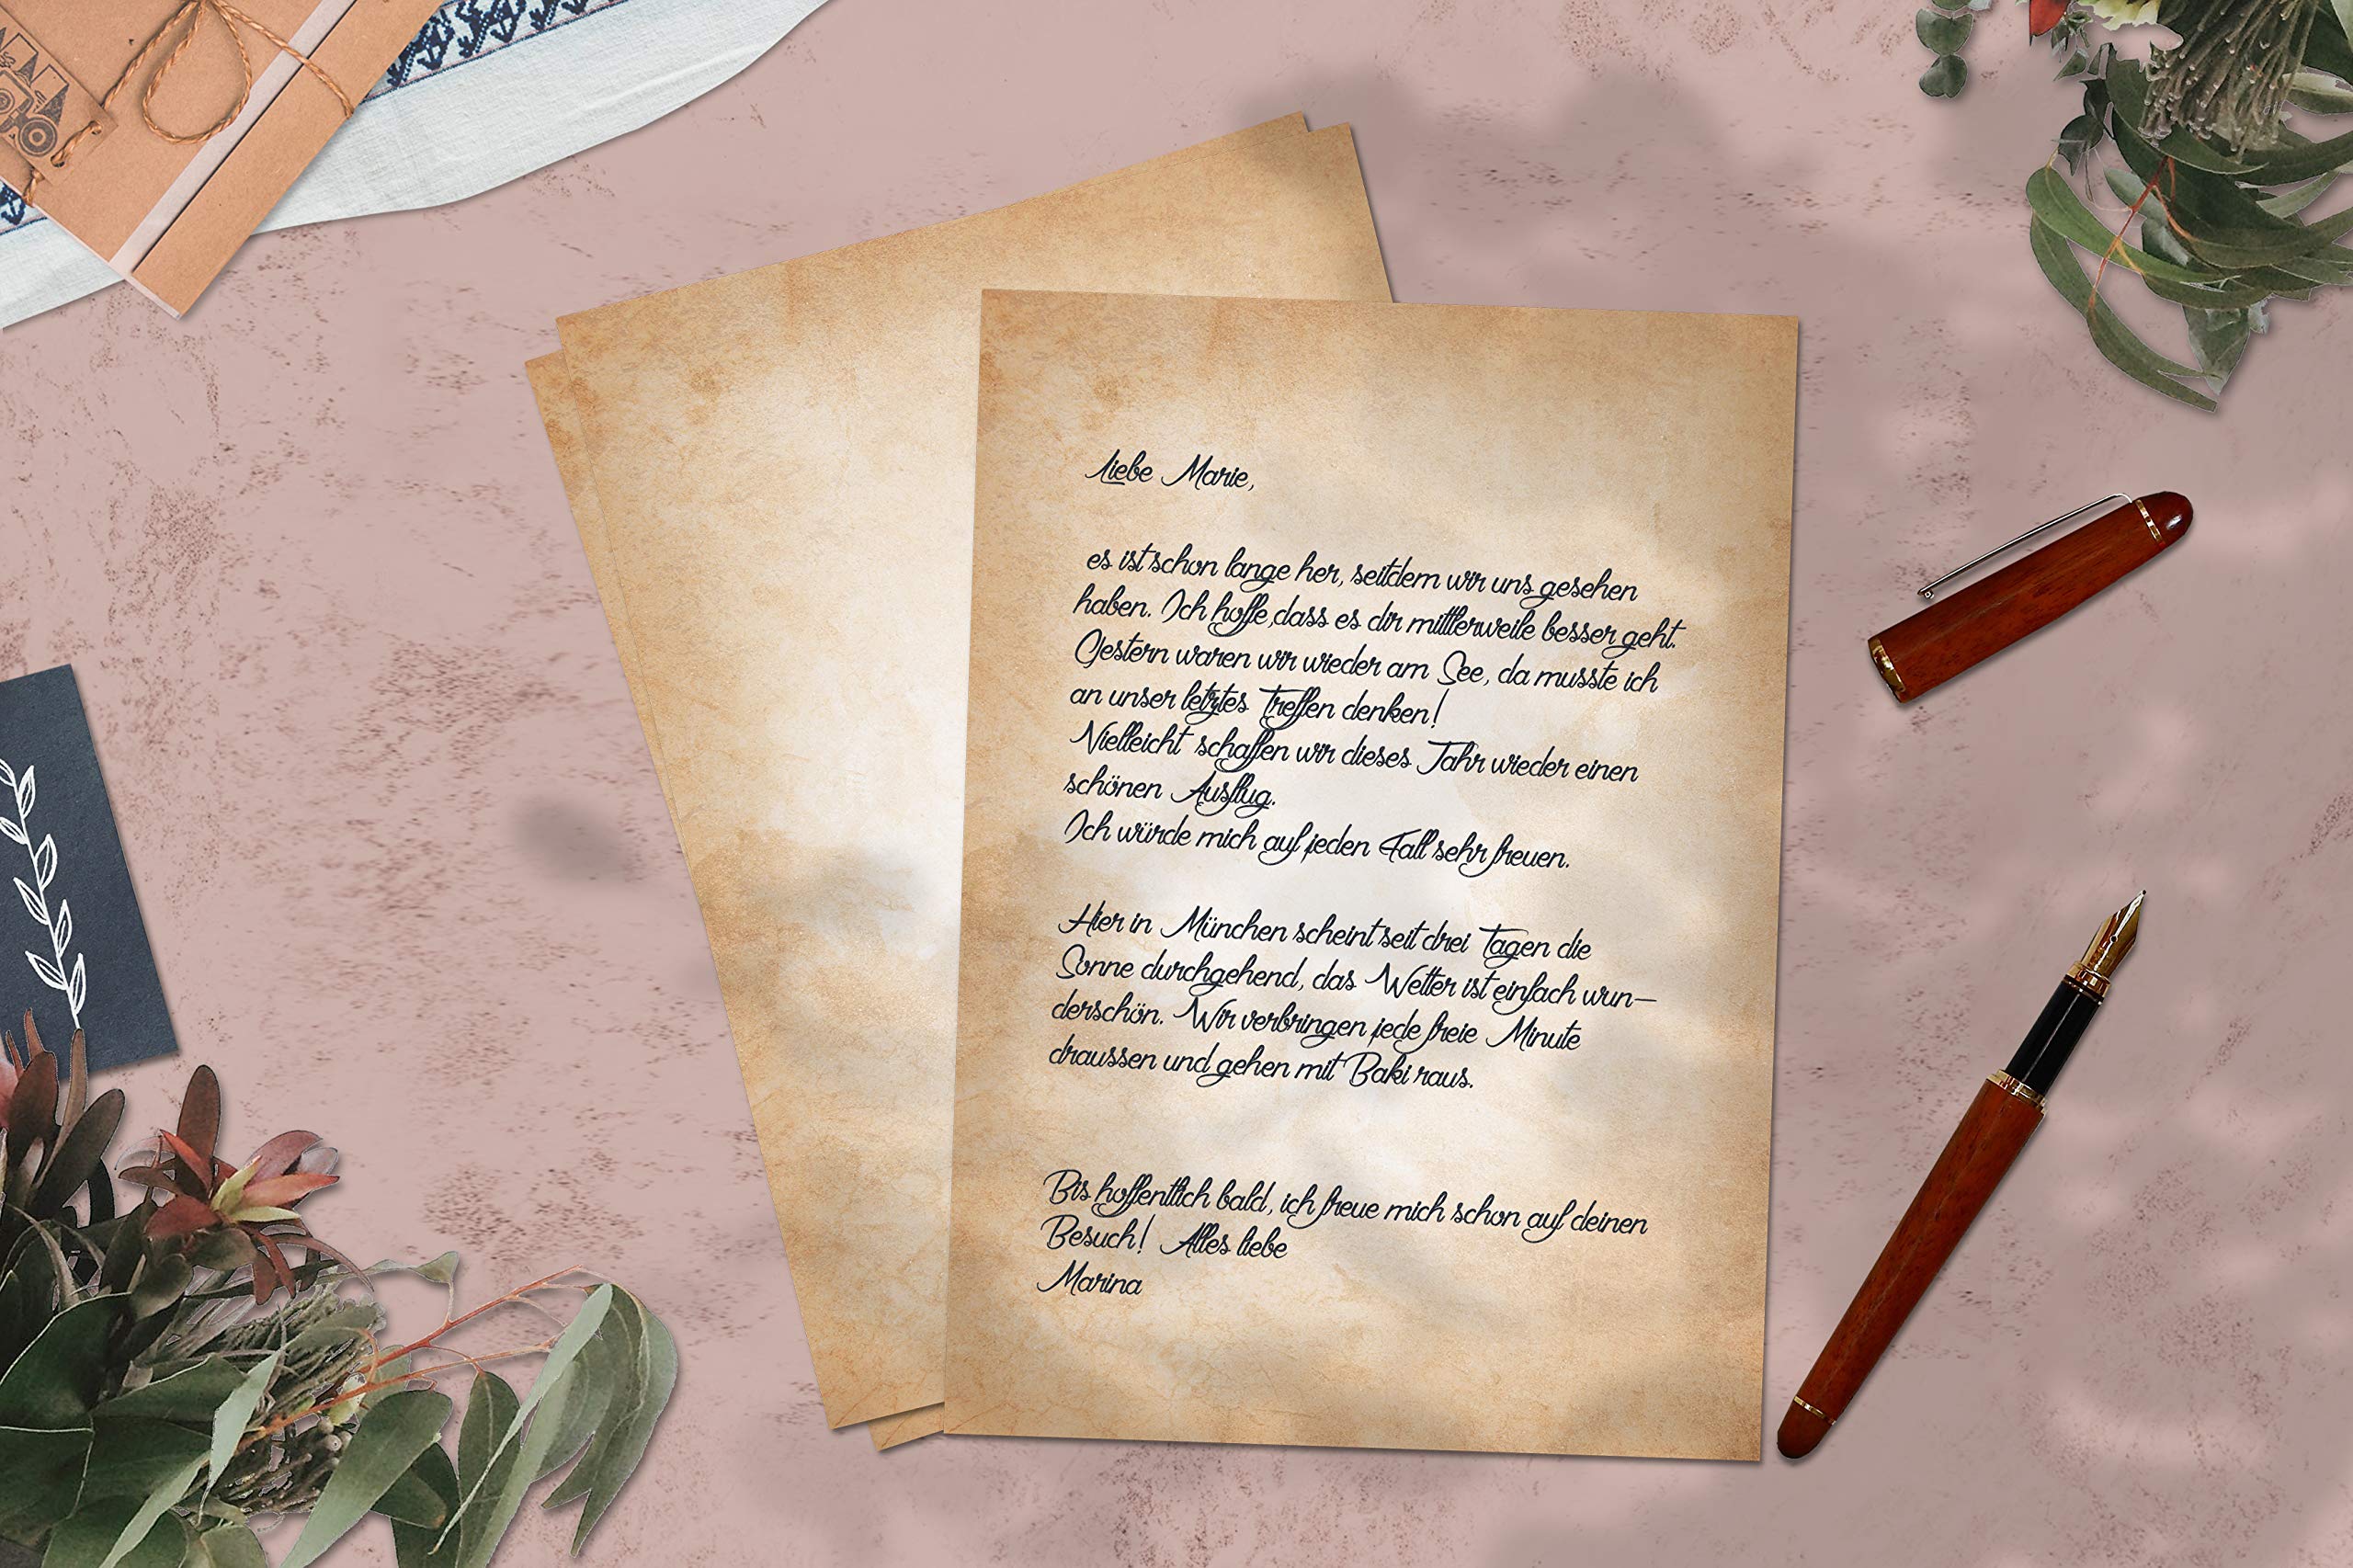 Liebe Marie,
es ist schon lange her, seitdem wir uns gesehen
haben. Ich hoffe, dass es dir mittlerweile besser geht.
Gestern waren wir wieder am See, da musste ich
an unser letztes Treffen denken!
Vielleicht schaffen wir dieses Jahr wieder einen
schönen Ausflug.
Ich würde mich auf jeden Fall sehr freuen.
Hier in München scheint seit drei Tagen die
Sonne durchgehend, das Wetter ist einfach wun-
derschön. Wir verbringen jede freie Minute
draussen und gehen mit Baki raus.
Bis hoffentlich bald, ich freue mich schon auf deinen
Besuch! Alles liebe
Marina